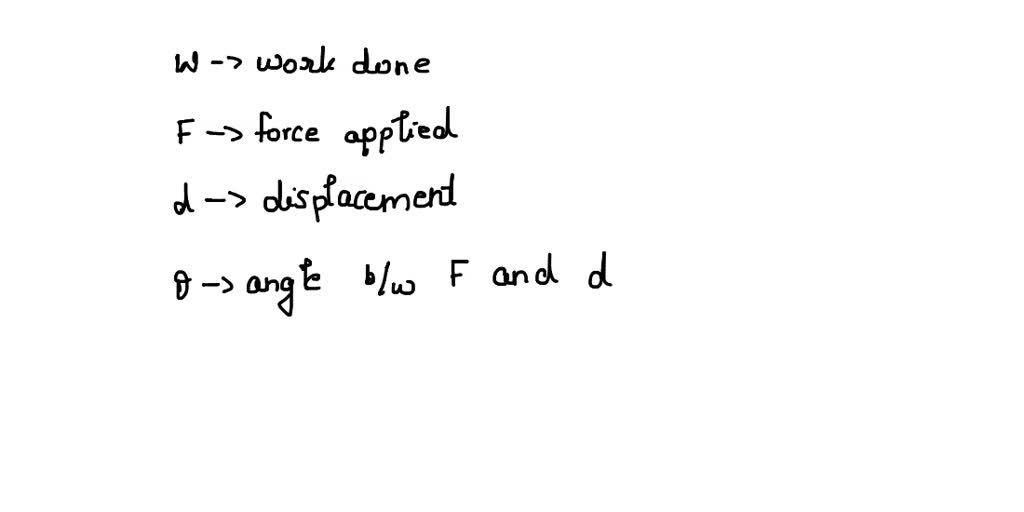 W -> work done
F -> force applied
d -> displacement
θ -> angle b/w F and d